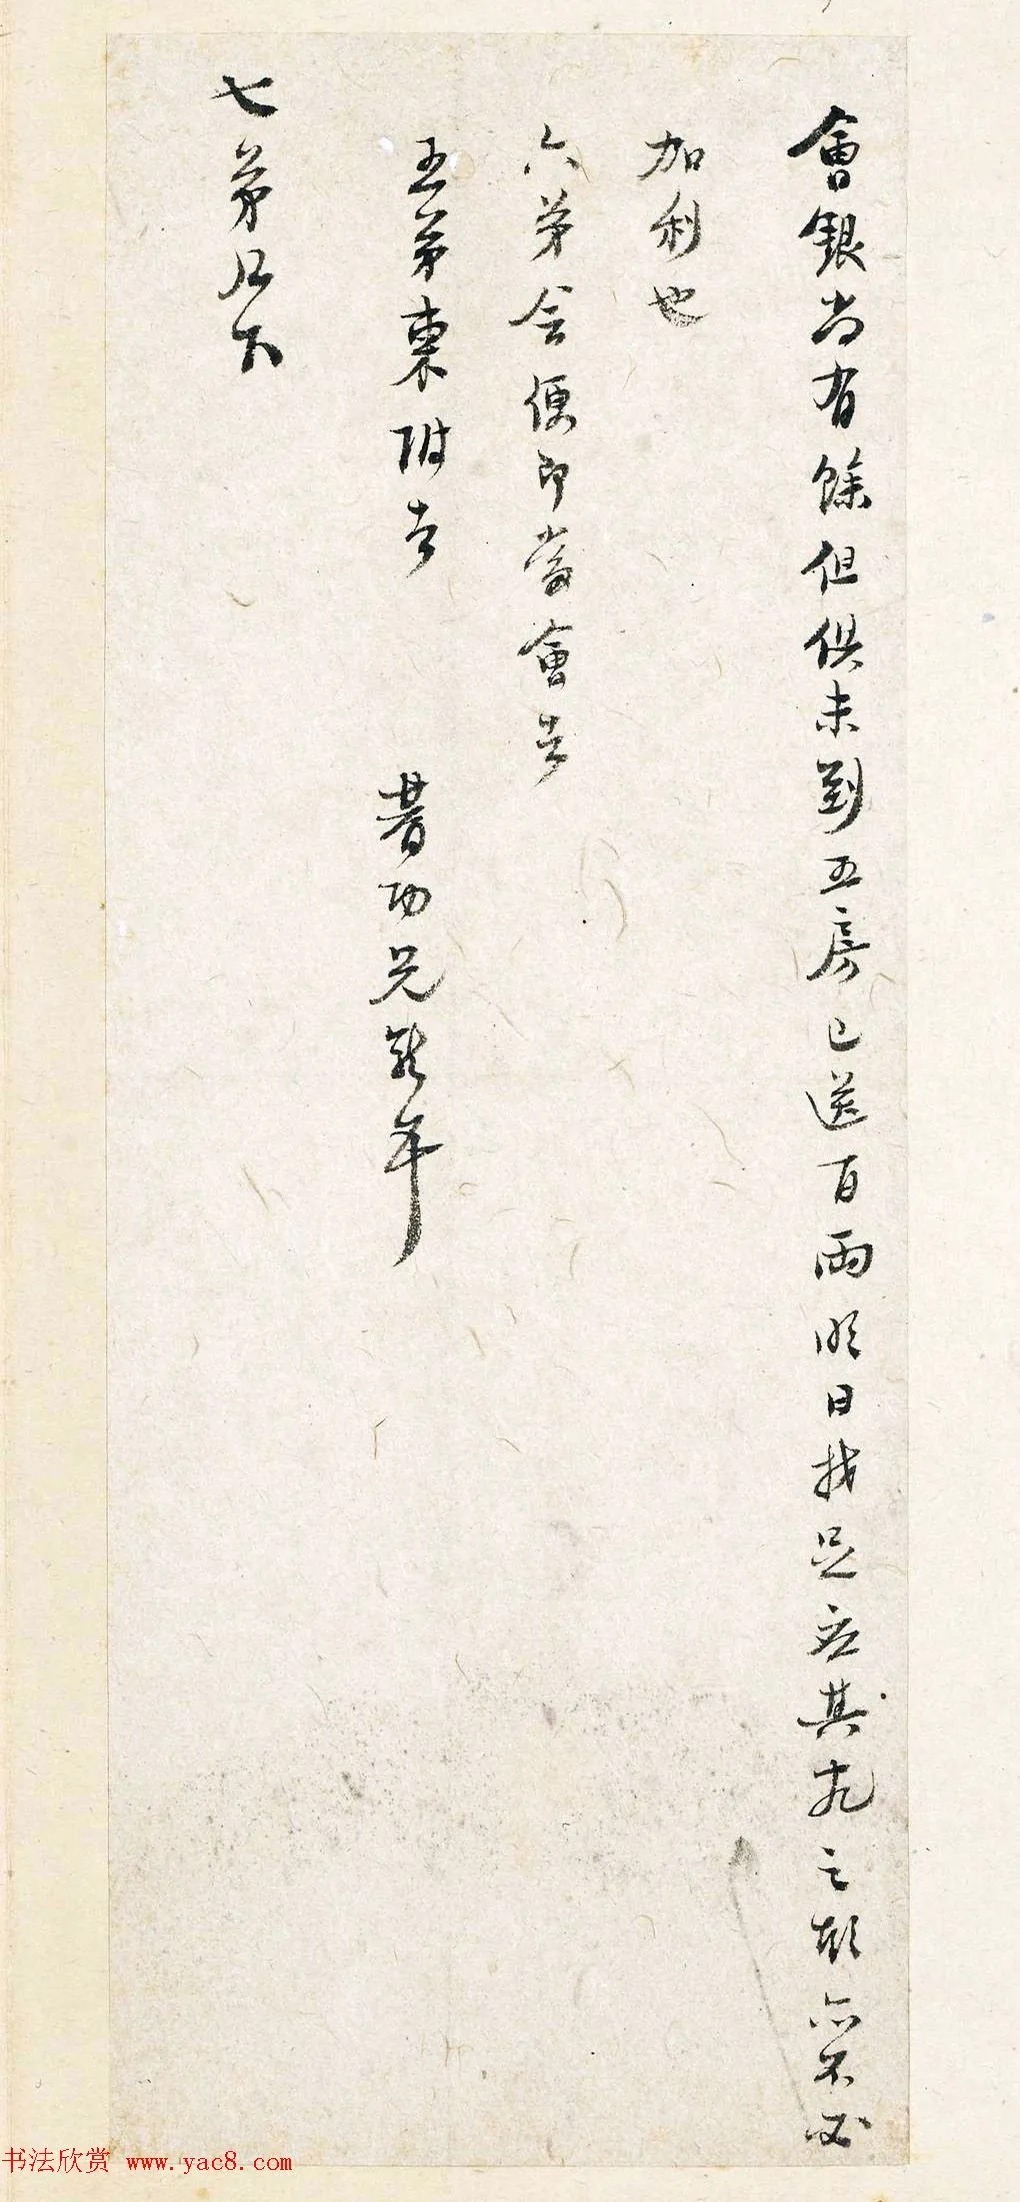 會銀尚有餘但俱未到五房已送百兩明日找足應其九之期亦不必
加利也
六弟會便即當會去
五弟柬附去 期功兄彭年
七弟足下
书法欣赏 www.yac8.com